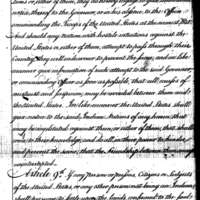 notice thereof to the Governor, or his officers, or the Officer
commanding the Troops of the United States at the nearest Post.
And should any nation with hostile intentions against the
United States or either of them, attempt to pass through their
Country, they will endeavour to prevent the same, and in like
manner give information of such attempt to the said Governor
or commanding Officer as soon as possible, that all causes of
mistrust and suspicion may be avoided between them and
the United States. In like manner the United States shall
give notice to the said Indian Nations of any harm that
may be meditated against them, or either of them, that shall
come to their knowledge; and do all in their power to hinder
and prevent the same, that the friendship between them may be
uninterrupted.
Article 9th If any person or persons, Citizens or Subjects
of the United States, or any other person not being an Indian,
shall presume to settle upon the lands confirmed to the said